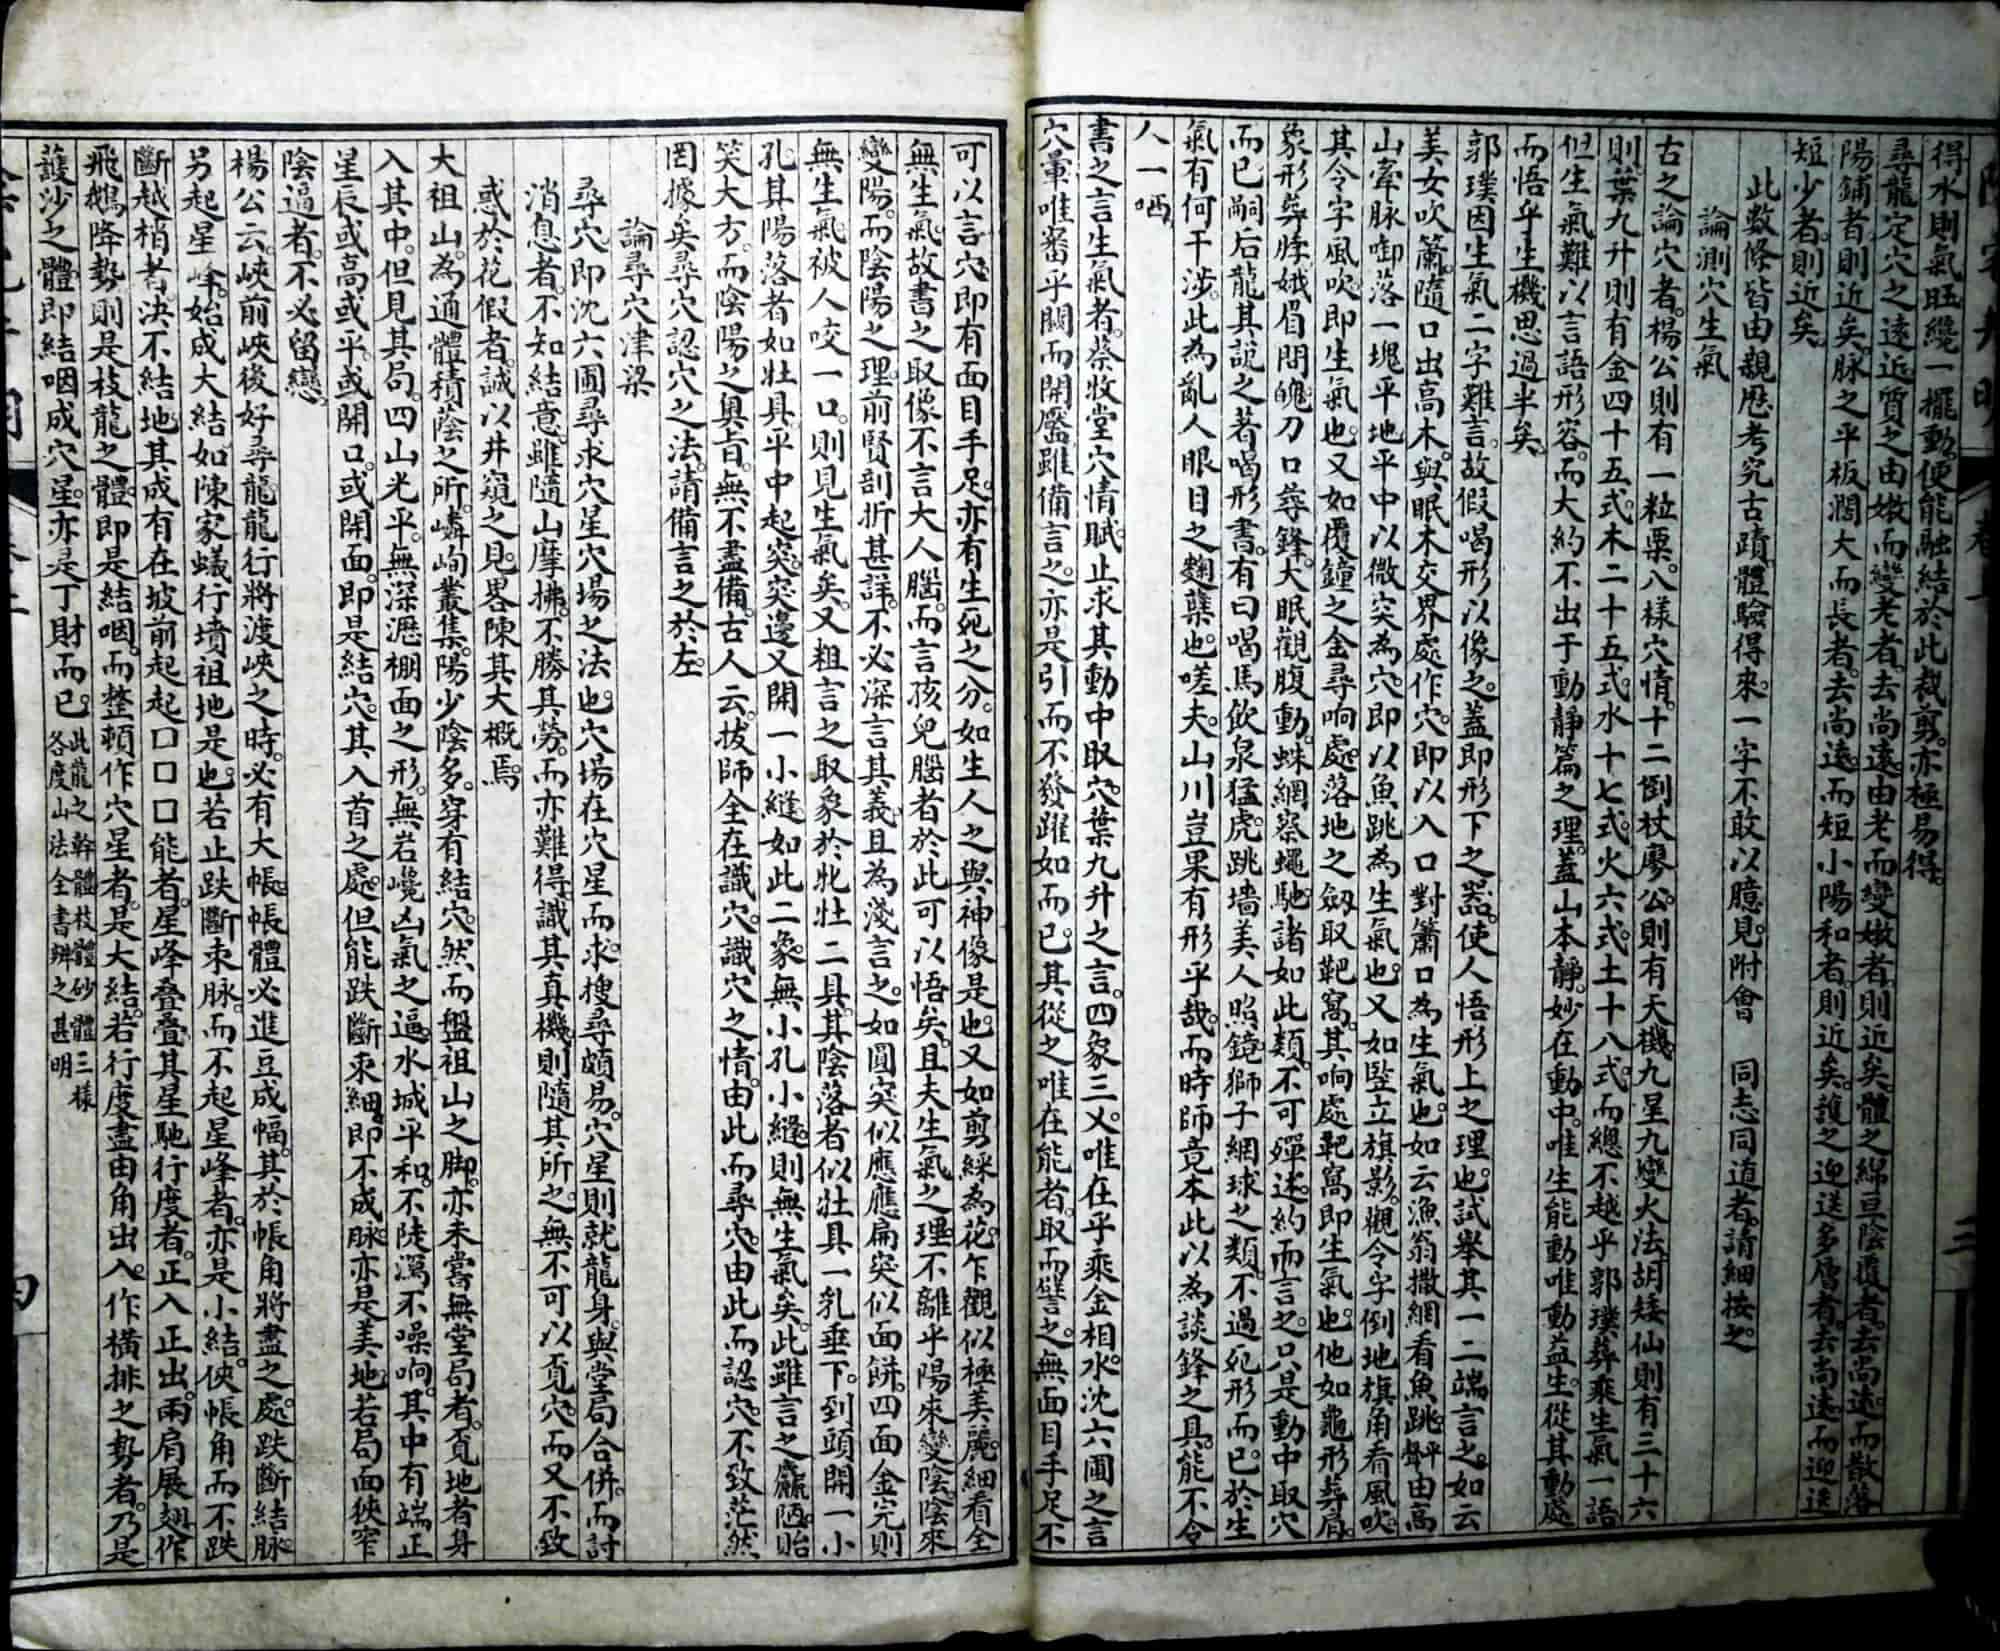 得水則氣旺纔一擺動便能融結於此裁剪亦極易得
尋龍定穴之遠近質之由嫩而變老者去尚遠由老而變嫩者則近矣體之綿亘陰覆者去尚遠而散落
陽鋪者則近矣脉之平板濶大而長者去尚遠而短小陽和者則近矣護之迎送多層者去尚遠而迎送
短少者則近矣
此數條皆由親歷考究古蹟體驗得來一字不敢以臆見附會 同志同道者請細按之
論測穴生氣
古之論穴者楊公則有一粒粟八樣穴情十二倒杖廖公則有天機九星九變火法胡矮仙則有三十六
則葉九升則有金四十五式木二十五式水十七式火六式土十八式而總不越乎郭璞葬乘生氣一語
但生氣難以言語形容而大約不出于動靜篇之理蓋山本靜妙在動中唯生能動唯動益生從其動處
而悟乎生機思過半矣
郭璞因生氣二字難言故假喝形以像之蓋即形下之器使人悟形上之理也試舉其一二端言之如云
美女吹簫隨口出高木與眠木交界處作穴即以入口對簫口為生氣也如云漁翁撒網看魚跳坪由高
山牽脉啣落一塊平地平中以微突為穴即以魚跳為生氣也又如竪立旗影觀令字倒地旗角看風吹
其令字風吹即生氣也又如覆鐘之金尋响處落地之劔取靶窩其响處靶窩即生氣也他如龜形葬肩
象形葬脖娥眉問魄刀口尋鋒犬眠觀腹動蛛網察蠅馳諸如此類不可殫述約而言之只是動中取穴
而已嗣后龍其説之者喝形書有曰喝馬飲泉猛虎跳墻美人照鏡獅子網球之類不過死形而已於生
氣有何干涉此為亂人眼目之麯蘖也嗟夫山川豈果有形乎哉而時師竟本此以為談鋒之具能不令
人一哂
書之言生氣者蔡牧堂穴情賦止求其動中取穴葉九升之言四象三乂唯在乎乘金相水沈六圃之言
穴暈唯審乎闗而開靨雖備言之亦是引而不發躍如而已其從之唯在能者取而譬之無面目手足不
可以言穴即有面目手足亦有生死之分如生人之與神像是也又如剪綵為花乍觀似極美麗細看全
無生氣故書之取像不言大人腦而言孩兒腦者於此可以悟矣且夫生氣之理不離乎陽來變陰陰來
變陽而陰陽之理前賢剖折甚詳不必深言其義且為淺言之如圓突似應應扁突似面餅四面金完則
無生氣被人咬一口則見生氣矣又粗言之取象於牝牡二具其陰落者似牡具一乳垂下到頭開一小
孔其陽落者如牡具平中起突突邊又開一小縫如此二象無小孔小縫則無生氣矣此雖言之麤陋貽
笑大方而陰陽之奥旨無不盡備古人云拔師全在識穴識穴之情由此而尋穴由此而認穴不致茫然
罔據矣尋穴認穴之法請備言之於左
論尋穴津梁
尋穴即沈六圃尋求穴星穴場之法也穴場在穴星而求搜尋頗易穴星則就龍身與堂局合併而討
消息者不知結意雖隨山摩拂不勝其勞而亦難得識其真機則隨其所之無不可以覓穴而又不致
惑於花假者誠以井窺之見畧陳其大概焉
大祖山為通體積蔭之所嶙峋叢集陽少陰多穿有結穴然而盤祖山之脚亦未嘗無堂局者覓地者身
入其中但見其局四山光平無深瀝棚面之形無岩巉凶氣之逼水城平和不陡瀉不噪响其中有端正
星辰或高或平或開口或開面即是結穴其入首之處但能跌斷束細即不成脉亦是美地若局面狹窄
陰逼者不必留戀
楊公云峽前峽後好尋龍龍行將渡峽之時必有大帳帳體必進豆成幅其於帳角將盡之處跌斷結脉
另起星峰始成大結如陳家蟻行墳祖地是也若止跌斷束脉而不起星峰者亦是小結俠帳角而不跌
斷越梢者決不結地其成有在坡前起起口口口能者星峰叠叠其星馳行度者正入正出兩肩展翅作
飛鵝降勢則是枝龍之體即是結咽而整頓作穴星者是大結若行度盡由角出入作橫排之勢者乃是
護沙之體即結咽成穴星亦是丁財而已此龍之幹體枝體砂體三樣各度山法全書辨之甚明